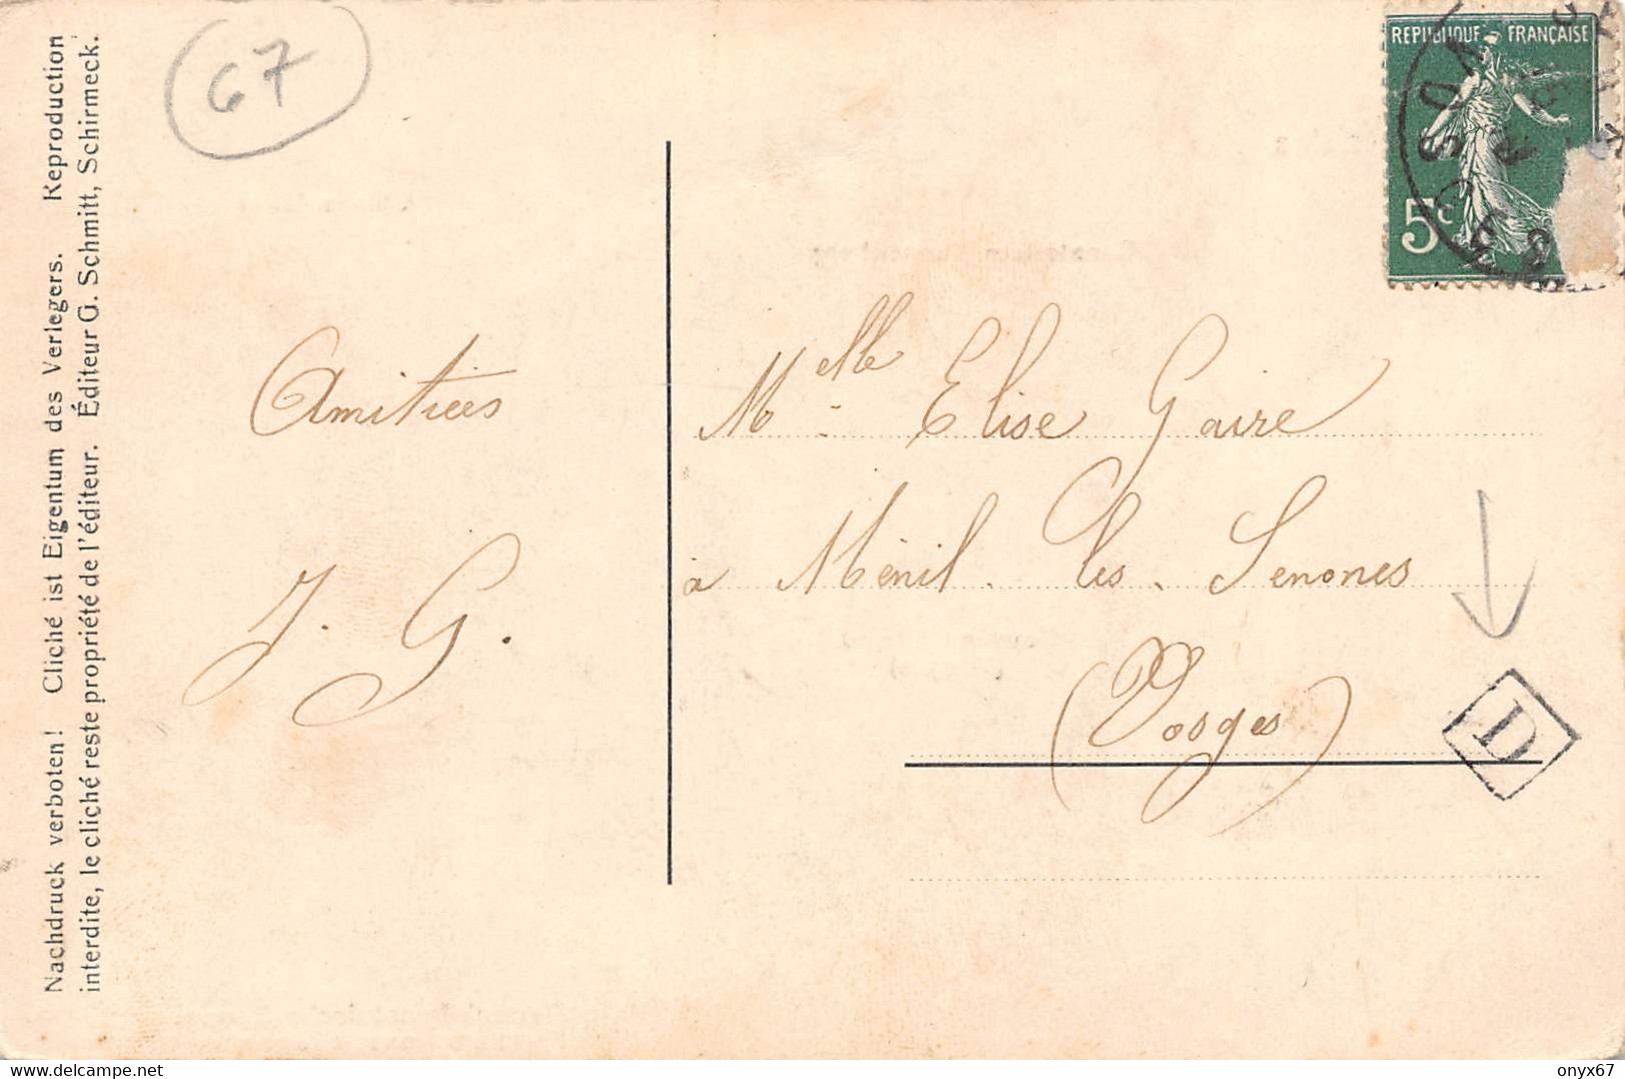 67
Nachdruck verboten! Cliché ist Eigentum des Verlegers. Reproduction
interdite, le cliché reste propriété de l'éditeur. Éditeur G. Schmitt, Schirmeck.
REPUBLIQUE FRANÇAISE
5c
Amitiées
J. G.
Melle Elise Gaire
à Ménil. les. Senones
(Vosges)
D
delcampe.net
onyx67